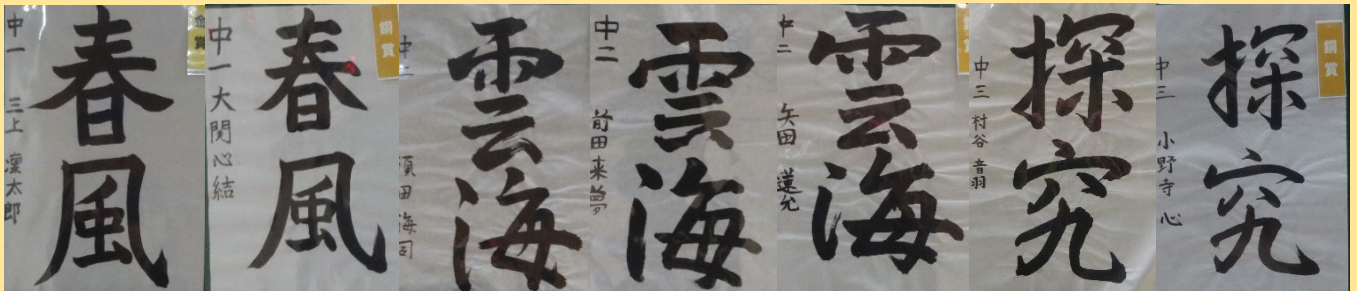 春風
中一 三上 凜太郎
金賞
春風
中一 大関心結
銅賞
雲海
中二 須田 海司
雲海
中二 前田来夢
雲海
中二 矢田 蓮允
探究
中三 村谷 音羽
探究
中三 小野寺 心
銅賞